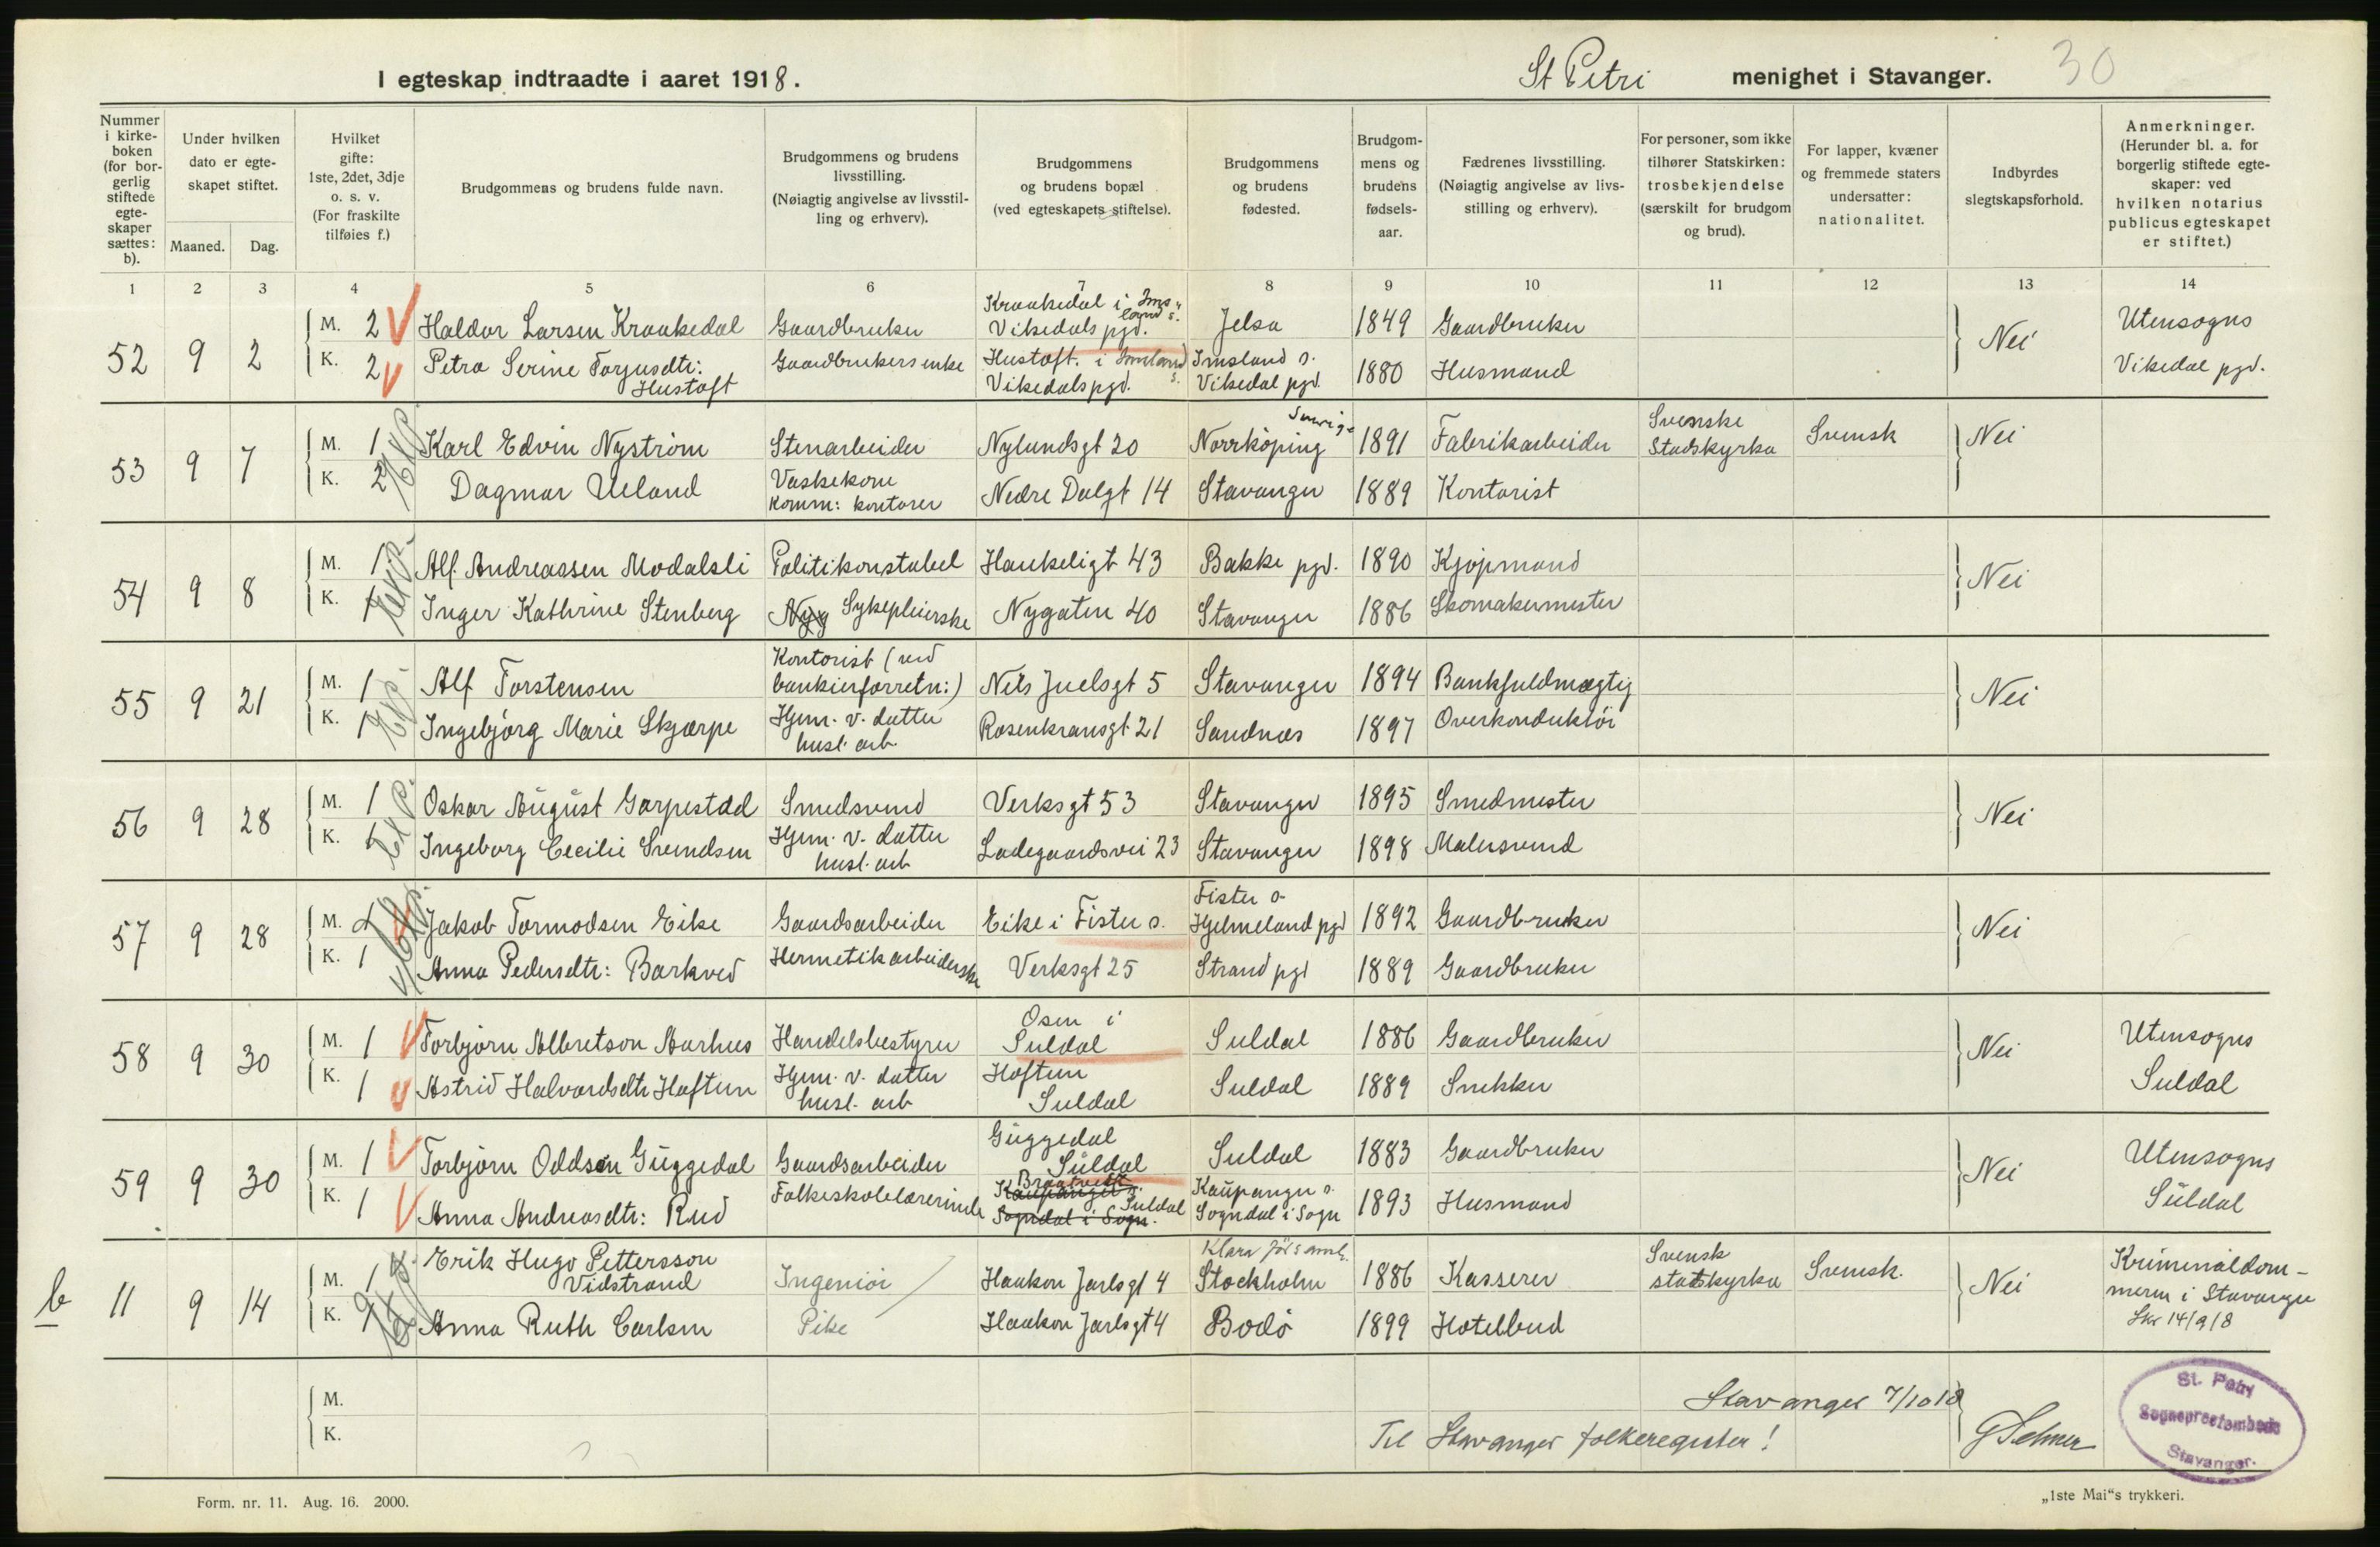 I egteskap indtraadte i aaret 1918.
St Petri menighet i Stavanger.
30
Nummer i kirkeboken (for borgerlig stiftede egteskaper sættes: b).
Under hvilken dato er egteskapet stiftet.
Maaned. Dag.
Hvilket gifte: 1ste, 2det, 3dje o. s. v. (For fraskilte tilføies f.)
Brudgommens og brudens fulde navn.
Brudgommens og brudens livsstilling. (Nøiagtig angivelse av livsstilling og erhverv).
Brudgommens og brudens bopæl (ved egteskapets stiftelse).
Brudgommens og brudens fødested.
Brudgommens og brudens fødselsaar.
Fædrenes livsstilling. (Nøiagtig angivelse av livsstilling og erhverv).
For personer, som ikke tilhører Statskirken: trosbekjendelse (særskilt for brudgom og brud).
For lapper, kvæner og fremmede staters undersatter: nationalitet.
Indbyrdes slegtskapsforhold.
Anmerkninger. (Herunder bl. a. for borgerlig stiftede egteskaper: ved hvilken notarius publicus egteskapet er stiftet.)
1 2 3 4 5 6 7 8 9 10 11 12 13 14
52 9 2
M. 2 Haldor Larsen Kraakedal Gaardbruker Kraakedal i Imsland s. Vikedals pgd. Jelsa 1849 Gaardbruker Nei Utensogns
K. 2 Petra Serine Torjusdtr: Hustoft Gaardbrukers enke Hustoft. i Imsland s. Vikedals pgd. Imsland s. Vikedal pgd. 1880 Husmand Vikedal pgd.
53 9 7
M. 1 Karl Edvin Nyström Stenarbeider Nylundsgt 20 Norrköping Sverige 1891 Fabrikarbeider Svenske Stadskyrka Svensk Nei
K. 2 Dagmar Ueland Vaskekone Komm: kontorer Nedre Dalgt 14 Stavanger 1889 Kontorist
54 9 8
M. 1 Alf Andreassen Modalsli Politikonstabel Haukeligt 43 Bakke pgd. 1890 Kjøpmand Nei
K. 1 Inger Kathrine Stenberg Nyg Sykepleierske Nygaten 40 Stavanger 1886 Skomakermester
55 9 21
M. 1 Alf Torstensen Kontorist (ved bankierforretn:) Nils Juelsgt 5 Stavanger 1894 Bankfuldmægtig Nei
K. 1 Ingebjørg Marie Skjærpe Hjem. v. datter husl. arb. Rosenkransgt 21 Sandnes 1897 Overkonduktør
56 9 28
M. 1 Oskar August Garpestad Smedsvend Verksgt 53 Stavanger 1895 Smedmester Nei
K. 1 Ingeborg Cecilie Svendsen Hjem. v. datter husl. arb Ladegaardsvei 23 Stavanger 1898 Malersvend
57 9 28
M. 2 Jakob Tormodsen Eike Gaardsarbeider Eike i Fister s. Fister s. Hjelmeland pgd 1892 Gaardbruker Nei
K. 1 Anna Pedersdtr: Barkved Hermetikarbeiderske Verksgt 25 Strand pgd 1889 Gaardbruker
58 9 30
M. 1 Torbjørn Albretson Aarhus Handelsbestyrer Osen i Suldal Suldal 1886 Gaardbruker Nei Utensogns
K. 1 Astrid Halvardsdtr Haftun Hjem. v. datter husl. arb Haftun Suldal Suldal 1889 Snekker Suldal
59 9 30
M. 1 Torbjørn Oddsen Guggedal Gaardsarbeider Guggedal Suldal Suldal 1883 Gaardbruker Nei Utensogns
K. 1 Anna Andreasdtr: Rud Folkeskolelærerinde Kaupanger s. Sogndal i Sogn. Braatveit Suldal Kaupanger s. Sogndal i Sogn 1893 Husmand Suldal
b 11 9 14
M. 1 Erik Hugo Pettersson Vidstrand Ingeniør Haakon Jarlsgt 4 Klara förs amb. Stockholm 1886 Kasserer Svensk statskyrka Svensk. Nei Kriminaldommeren i Stavanger
K. 1 Anna Ruth Carlsen Pike Haakon Jarlsgt 4 Bodø 1899 Hotelbud Skr 14/9 18
M.
K.
Stavanger 7/10 18
Til Stavanger folkeregister!
St. Petri
Sogneprestembede
Stavanger.
Form. nr. 11. Aug. 16. 2000.
„1ste Mai“s trykkeri.